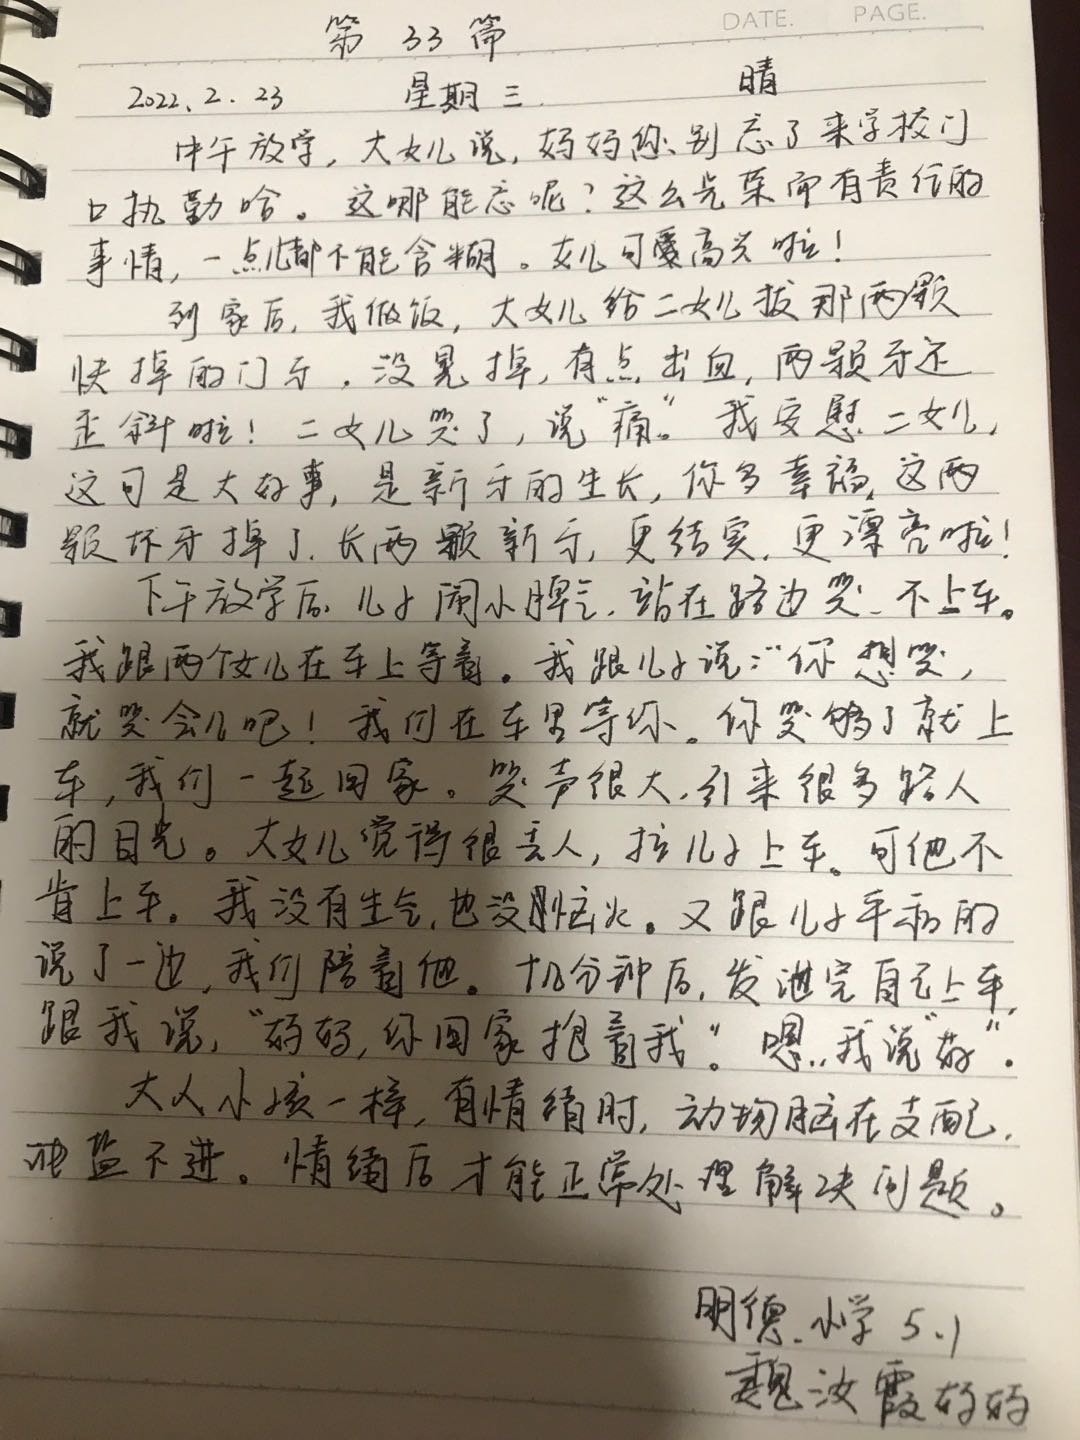 DATE. PAGE.
第 33 篇
2022.2.23 星期三 晴
中午放学,大女儿说,妈妈您别忘了来学校门
口执勤哈。这哪能忘呢?这么光荣而有责任的
事情,一点儿都不能含糊。女儿可爱高兴啦!
到家后,我做饭,大女儿给二女儿拔那两颗
快掉的门牙,没晃掉,有点出血,两颗牙还
歪斜啦!二女儿哭了,说“痛。”我安慰二女儿,
这可是大好事,是新牙的生长,你多幸福,这两
颗坏牙掉了,长两颗新牙,更结实,更漂亮啦!
下午放学后,儿子闹小脾气,站在路边哭,不上车。
我跟两个女儿在车上等着。我跟儿子说:“你想哭,
就哭会儿吧!我们在车里等你。你哭够了就上
车,我们一起回家。哭声很大,引来很多路人
的目光。大女儿觉得很丢人,拉儿子上车。可他不
肯上车。我没有生气,也没恼火。又跟儿子平和的
说了一边,我们陪着他。十几分钟后,发泄完自己上车,
跟我说,“妈妈,你回家抱着我”。嗯..我说“好”.
大人小孩一样,有情绪时,动物脑在支配,
油盐不进。情绪后才能正常处理解决问题。
明德小学 5.1
魏汝霞妈妈